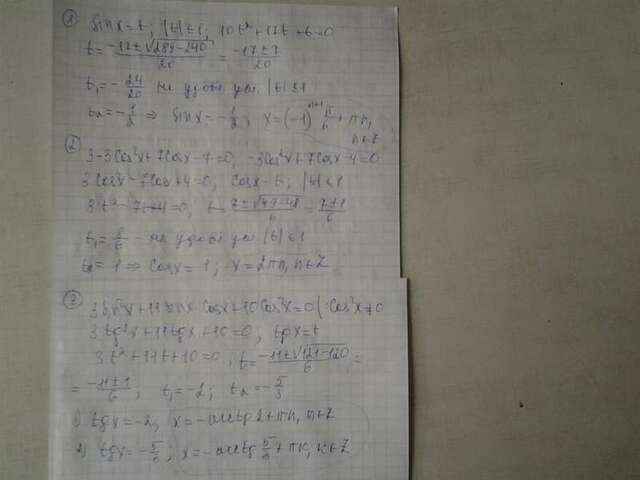 1) sin x = t; |t| ≤ 1; 10t² + 17t + 6 = 0
t = (-17 ± √(289-240))/20 = (-17 ± 7)/20
t₁ = -24/20 не удовл. усл. |t| ≤ 1
t₂ = -1/2 ⇒ sin x = -1/2; x = (-1)ⁿ⁺¹ π/6 + πn,
n ∈ Z
2) 3 - 3cos²x + 7cos x - 7 = 0; -3cos²x + 7cos x - 4 = 0
3cos²x - 7cos x + 4 = 0; cos x = t; |t| ≤ 1
3t² - 7t + 4 = 0; t = (7 ± √(49-48))/6 = (7 ± 1)/6
t₁ = 8/6 - не удовл усл |t| ≤ 1
t₂ = 1 ⇒ cos x = 1; x = 2πn, n ∈ Z
3) 3sin²x + 11sin x cos x + 10cos²x = 0 (: cos²x ≠ 0
3tg²x + 11tgx + 10 = 0; tgx = t
3t² + 11t + 10 = 0; t = (-11 ± √(121-120))/6 =
= (-11 ± 1)/6; t₁ = -2; t₂ = -5/3
1) tgx = -2, x = -arctg 2 + πn, n ∈ Z
2) tgx = -5/3; x = -arctg 5/3 + πk, k ∈ Z